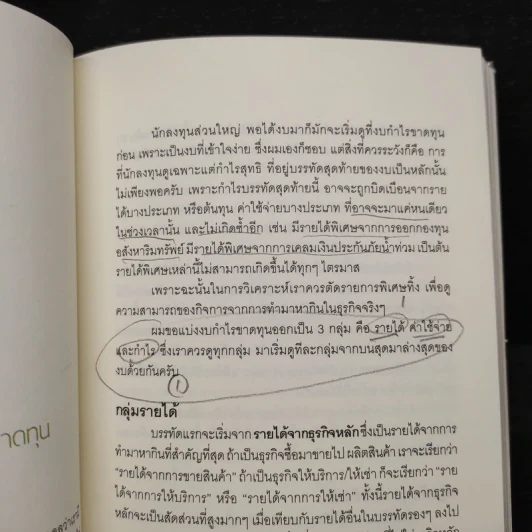 นักลงทุนส่วนใหญ่ พอได้งบมาก็มักจะเริ่มดูที่งบกำไรขาดทุน
ก่อน เพราะเป็นงบที่เข้าใจง่าย ซึ่งผมเองก็ชอบ แต่สิ่งที่ควรระวังก็คือ การ
ที่นักลงทุนดูเฉพาะแต่กำไรสุทธิ ที่อยู่บรรทัดสุดท้ายของงบเป็นหลักนั้น
ไม่เพียงพอครับ เพราะกำไรบรรทัดสุดท้ายนี้ อาจจะถูกบิดเบือนจากราย
ได้บางประเภท หรือต้นทุน ค่าใช้จ่ายบางประเภท ที่อาจจะมาแค่หนเดียว
ในช่วงเวลานั้น และไม่เกิดซ้ำอีก เช่น มีรายได้พิเศษจากการออกกองทุน
อสังหาริมทรัพย์ มีรายได้พิเศษจากการเคลมเงินประกันภัยน้ำท่วม เป็นต้น
รายได้พิเศษเหล่านี้ไม่สามารถเกิดขึ้นได้ทุกๆ ไตรมาส
เพราะฉะนั้นในการวิเคราะห์เราควรตัดรายการพิเศษทิ้ง เพื่อดู
ความสามารถของกิจการจากการทำมาหากินในธุรกิจจริงๆ
1
ผมขอแบ่งงบกำไรขาดทุนออกเป็น 3 กลุ่ม คือ รายได้ ค่าใช้จ่าย
และกำไร ซึ่งเราควรดูทุกกลุ่ม มาเริ่มดูทีละกลุ่มจากบนสุดมาล่างสุดของ
งบด้วยกันครับ
1
กลุ่มรายได้
บรรทัดแรกจะเริ่มจาก รายได้จากธุรกิจหลัก ซึ่งเป็นรายได้จากการ
ทำมาหากินที่สำคัญที่สุด ถ้าเป็นธุรกิจซื้อมาขายไป ผลิตสินค้า เราจะเรียกว่า
"รายได้จากการขายสินค้า" ถ้าเป็นธุรกิจให้บริการ/ให้เช่า ก็จะเรียกว่า "ราย
ได้จากการให้บริการ" หรือ "รายได้จากการให้เช่า" ทั้งนี้รายได้จากธุรกิจ
หลักจะเป็นสัดส่วนที่สูงมากๆ เมื่อเทียบกับรายได้อื่นในบรรทัดรองๆ ลงไป
าดทุน